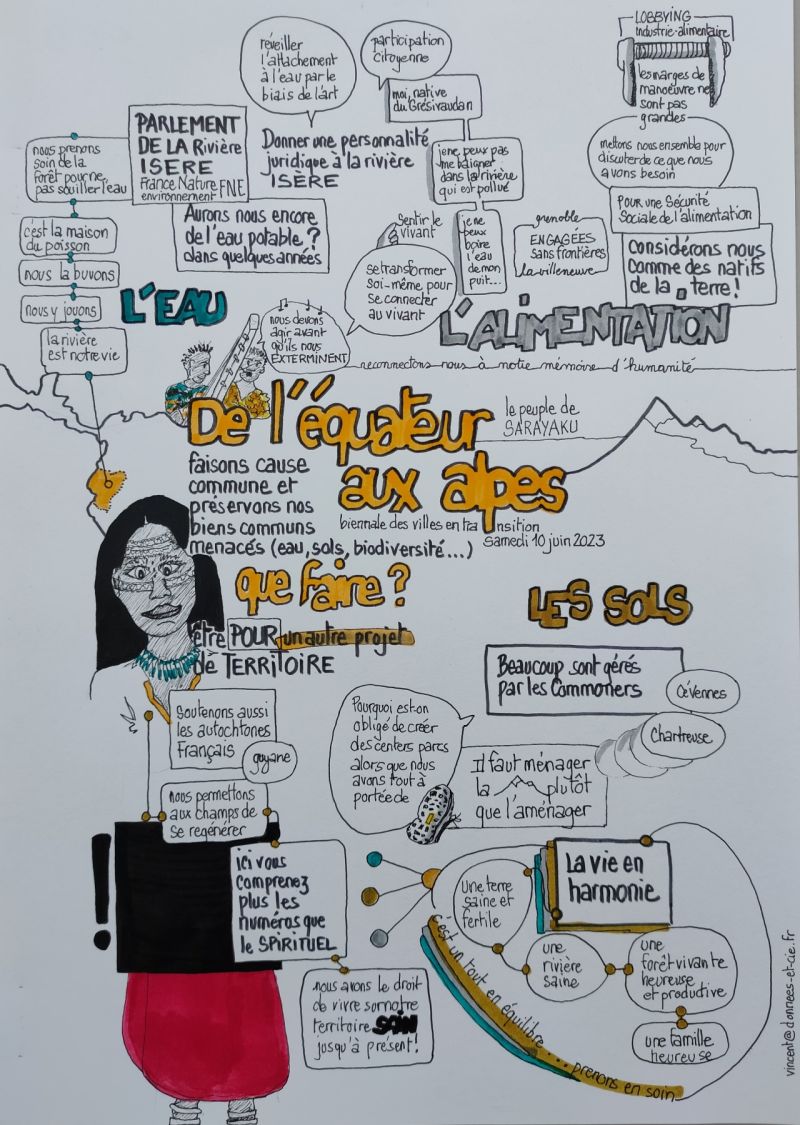 LOBBYING
industrie-alimentaire
les marges de
manoeuvre ne
sont pas
grandes
réveiller
l'attachement
à l'eau par le
biais de l'art
participation
citoyenne
moi, native
du Grésivaudan
je ne peux pas
me baigner
dans la rivière
qui est pollué
je ne
peux
boire
l'eau
de mon
puit...
PARLEMENT
DE LA Rivière
ISERE
France Nature
environnement FNE
Donner une personnalité
juridique à la rivière
ISÈRE
Aurons nous encore
de l'eau potable ?
dans quelques années
nous prenons
soin de la
forêt pour ne
pas souiller l'eau
c'est la maison
du poisson
nous la buvons
nous y jouons
la rivière
est notre vie
L'EAU
Sentir le
vivant
se transformer
soi-même, pour
se connecter
au vivant
nous devons
agir avant
qu'ils nous
EXTERMINENT
grenoble
ENGAGÉES
sans frontières
la villeneuve
mettons nous ensemble pour
discuter de ce que nous
avons besoin
POUR une Sécurité
Sociale de l'alimentation
Considérons nous
comme des natifs
de la terre !
L'ALIMENTATION
reconnectons nous à notre mémoire d'humanité
De l'équateur
aux alpes
le peuple de
SARAYAKU
faisons cause
commune et
préservons nos
biens communs
menacés (eau, sols, biodiversité...)
biennale des villes en transition
samedi 10 juin 2023
que faire ?
être POUR un autre projet
de TERRITOIRE
LES SOLS
Beaucoup sont gérés
par les Commoners
Cévennes
Chartreuse
Il faut ménager
la plutôt
que l'aménager
Pourquoi est on
obligé de créer
des centers parcs
alors que nous
avons tout à
portée de
Soutenons aussi
les autochtones
Français
guyane
nous permettons
aux champs de
se regénérer
!
ici vous
comprenez
plus les
numéros que
le SPIRITUEL
nous avons le droit
de vivre sur notre
territoire SAIN
jusqu'à présent !
La vie en
harmonie
Une terre
saine et
fertile
une
rivière
saine
une
forêt vivante
heureuse
et productive
une famille
heureuse
c'est un tout en équilibre... prenons en soin
vincent@donnees-et-cie.fr